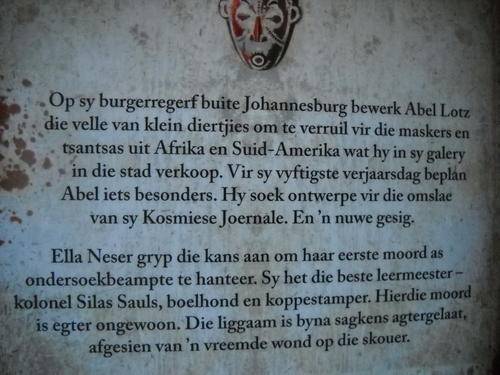 Op sy burgerregerf buite Johannesburg bewerk Abel Lotz
die velle van klein diertjies om te verruil vir die maskers en
tsantsas uit Afrika en Suid-Amerika wat hy in sy galery
in die stad verkoop. Vir sy vyftigste verjaarsdag beplan
Abel iets besonders. Hy soek ontwerpe vir die omslae
van sy Kosmiese Joernale. En 'n nuwe gesig.
Ella Neser gryp die kans aan om haar eerste moord as
ondersoekbeampte te hanteer. Sy het die beste leermeester –
kolonel Silas Sauls, boelhond en koppestamper. Hierdie moord
is egter ongewoon. Die liggaam is byna sagkens agtergelaat,
afgesien van 'n vreemde wond op die skouer.